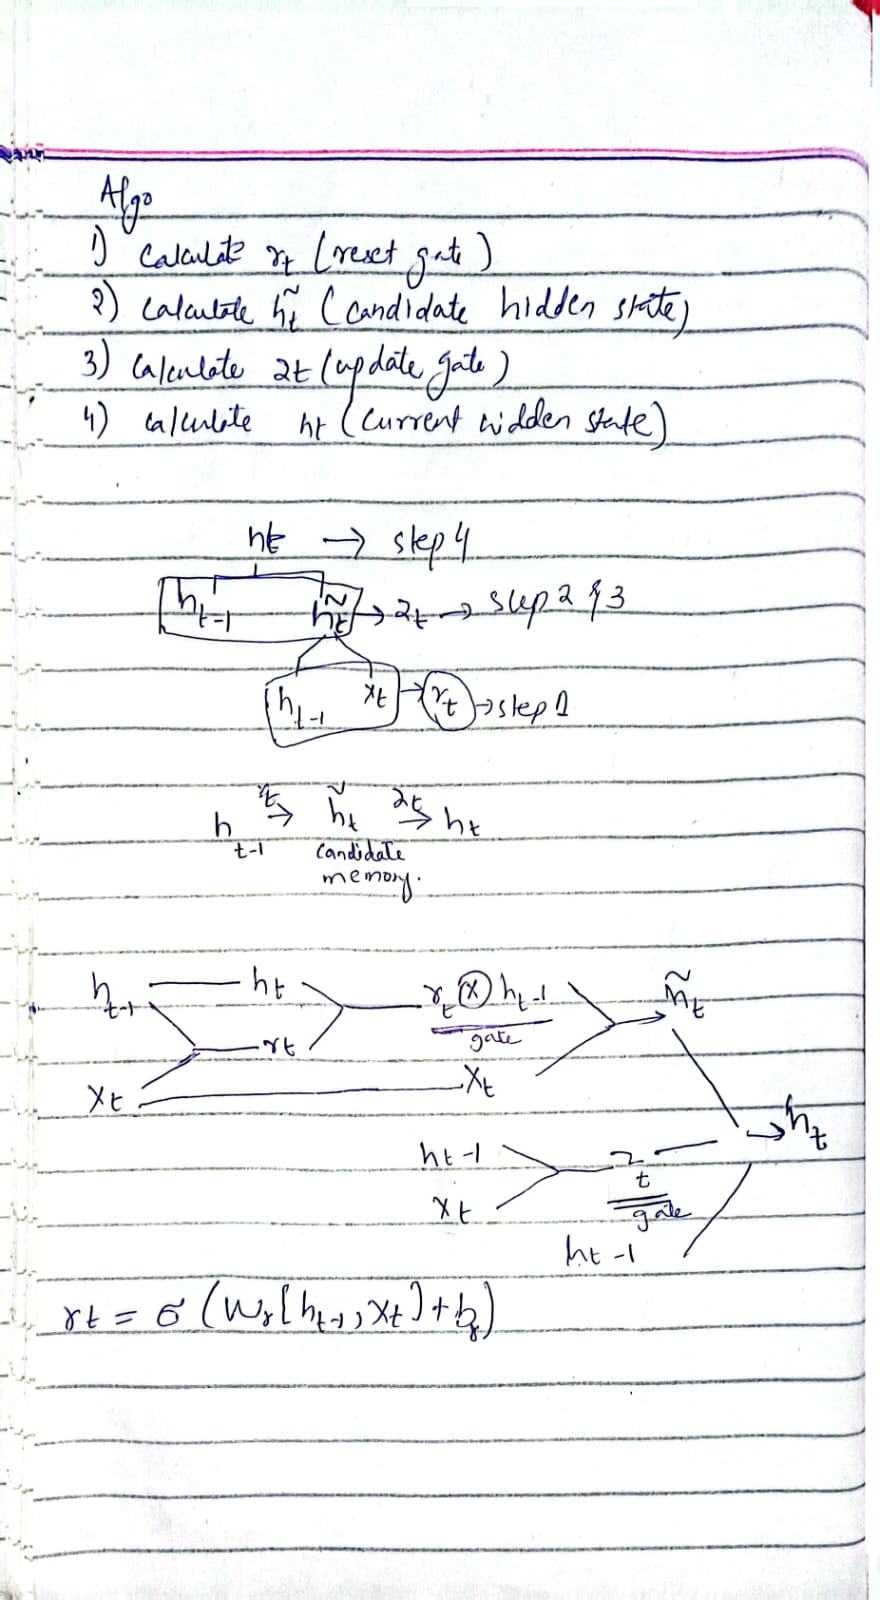 Algo
1) Calculate rt (reset gate)
2) Calculate h̃t (Candidate hidden state)
3) Calculate zt (update gate)
4) Calculate ht (current hidden state)
ht → step 4
ht-1 h̃t → zt → step 2 & 3
ht-1 xt → rt → step 1
ht-1 rt → h̃t zt → ht
candidate
memory.
ht-1 ht rt ⊗ ht-1 h̃t
gate
rt
xt xt
ht
ht-1 zt
xt gate
ht-1
rt = σ (Wr[ht-1, xt] + br)